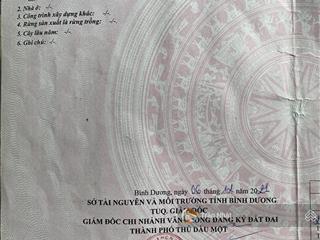 2. Nhà ở: -/-
3. Công trình xây dựng khác: -/-
4. Rừng sản xuất là rừng trồng: -/-
5. Cây lâu năm: -/-
6. Ghi chú: -/-
Bình Dương, ngày 06 tháng năm 2021
SỞ TÀI NGUYÊN VÀ MÔI TRƯỜNG TỈNH BÌNH DƯƠNG
TUQ. GIÁM ĐỐC
GIÁM ĐỐC CHI NHÁNH VĂN PHÒNG ĐĂNG KÝ ĐẤT ĐAI
THÀNH PHỐ THỦ DẦU MỘT